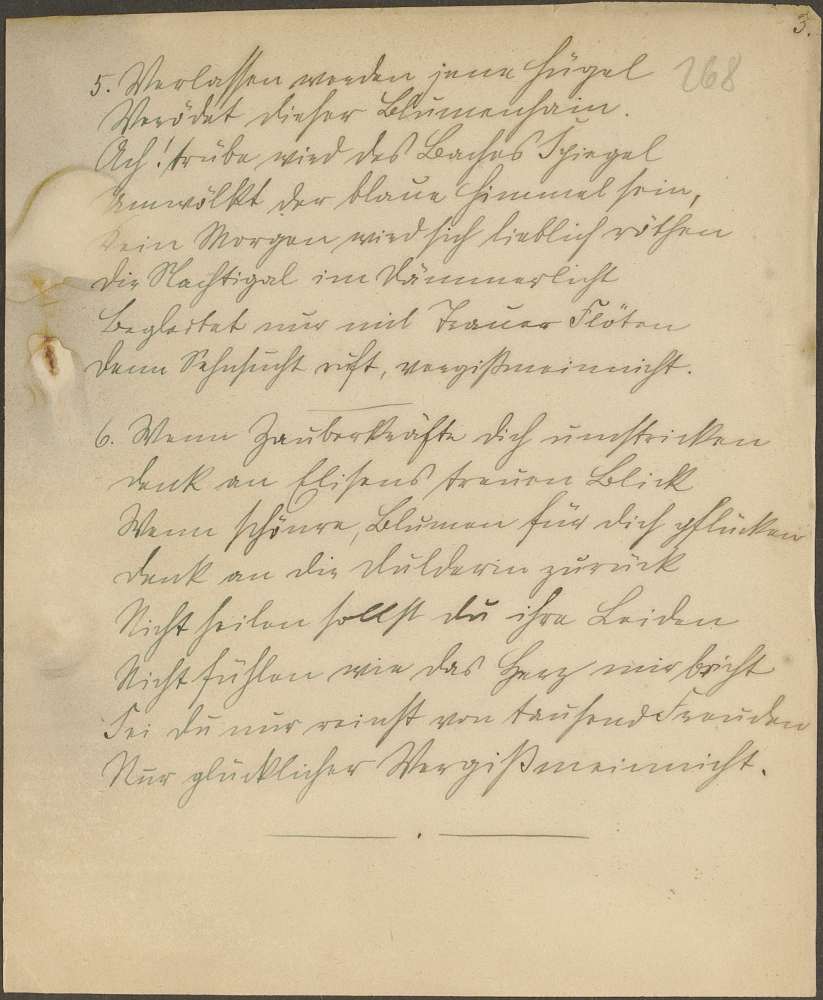 3.
268
5. Verlassen werden jene Hügel
Verödet dieser Blumenhain.
Ach! trübe wird des Baches Spiegel
Umwölkt der blaue Himmel sein,
Kein Morgen wird sich lieblich röthen
Die Nachtigal im Dämmerlicht
Begleitet nur mit Trauer Flöten
Denn Sehnsucht ruft, vergißmeinnicht.
6. Wenn Zauberkräfte dich umstricken
denk an Elisens treuen Blick
Wenn schönre, Blumen für dich pflücken
Denk an die Dulderin zurück
Nicht heilen sollst du ihre Leiden
Nicht fühlen wie das Herz mir bricht
Sei du nur reinst von tausend Freuden
Nur glücklicher Vergißmeinnicht.